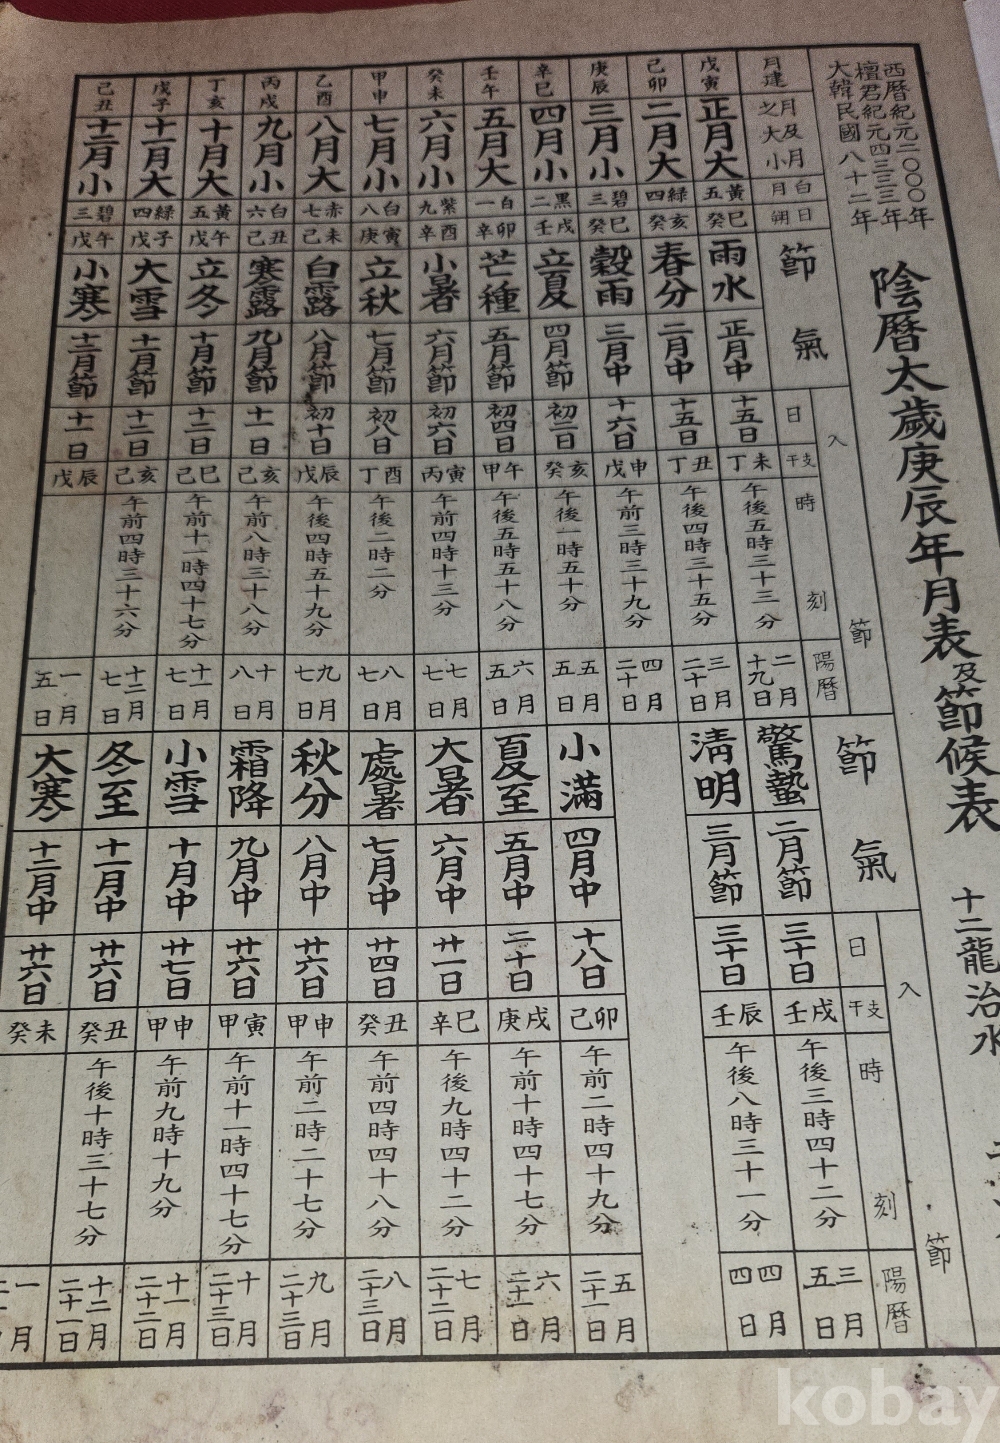 西曆紀元二〇〇〇年
檀君紀元四三三三年
大韓民國八十二年
陰曆太歲庚辰年月表及節候表 十二龍治水
月建 月及月之大小 月白 朔日 節氣 入節 日 干支 時刻 陽曆 節氣 入節 日 干支 時刻 陽曆
戊寅 正月大 五黃 癸巳 雨水 正月中 十五日 丁未 午後五時三十三分 二月十九日 驚蟄 二月節 三十日 壬戌 午後三時四十二分 三月五日
己卯 二月大 四綠 癸亥 春分 二月中 十五日 丁丑 午後四時三十五分 三月二十日 淸明 三月節 三十日 壬辰 午後八時三十一分 四月四日
庚辰 三月小 三碧 癸巳 穀雨 三月中 十六日 戊申 午前三時三十九分 四月二十日
辛巳 四月小 二黑 壬戌 立夏 四月節 初二日 癸亥 午後一時五十分 五月五日 小滿 四月中 十八日 己卯 午前二時四十九分 五月二十一日
壬午 五月大 一白 辛卯 芒種 五月節 初四日 甲午 午後五時五十八分 六月五日 夏至 五月中 二十日 庚戌 午前十時四十七分 六月二十一日
癸未 六月小 九紫 辛酉 小暑 六月節 初六日 丙寅 午前四時十三分 七月七日 大暑 六月中 廿一日 辛巳 午後九時四十二分 七月二十二日
甲申 七月小 八白 庚寅 立秋 七月節 初八日 丁酉 午後二時二分 八月七日 處暑 七月中 廿四日 癸丑 午前四時四十八分 八月二十三日
乙酉 八月大 七赤 己未 白露 八月節 初十日 戊辰 午後四時五十九分 九月七日 秋分 八月中 廿六日 甲申 午前二時二十七分 九月二十三日
丙戌 九月小 六白 己丑 寒露 九月節 十一日 己亥 午前八時三十八分 十月八日 霜降 九月中 廿六日 甲寅 午前十一時四十七分 十月二十三日
丁亥 十月大 五黃 戊午 立冬 十月節 十二日 己巳 午前十一時四十七分 十一月七日 小雪 十月中 廿七日 甲申 午前九時十九分 十一月二十二日
戊子 十一月大 四綠 戊子 大雪 十一月節 十二日 己亥 午前四時三十六分 十二月七日 冬至 十一月中 廿六日 癸丑 午後十時三十七分 十二月二十一日
己丑 十二月小 三碧 戊午 小寒 十二月節 十一日 戊辰 一月五日 大寒 十二月中 廿六日 癸未 一月
kobay